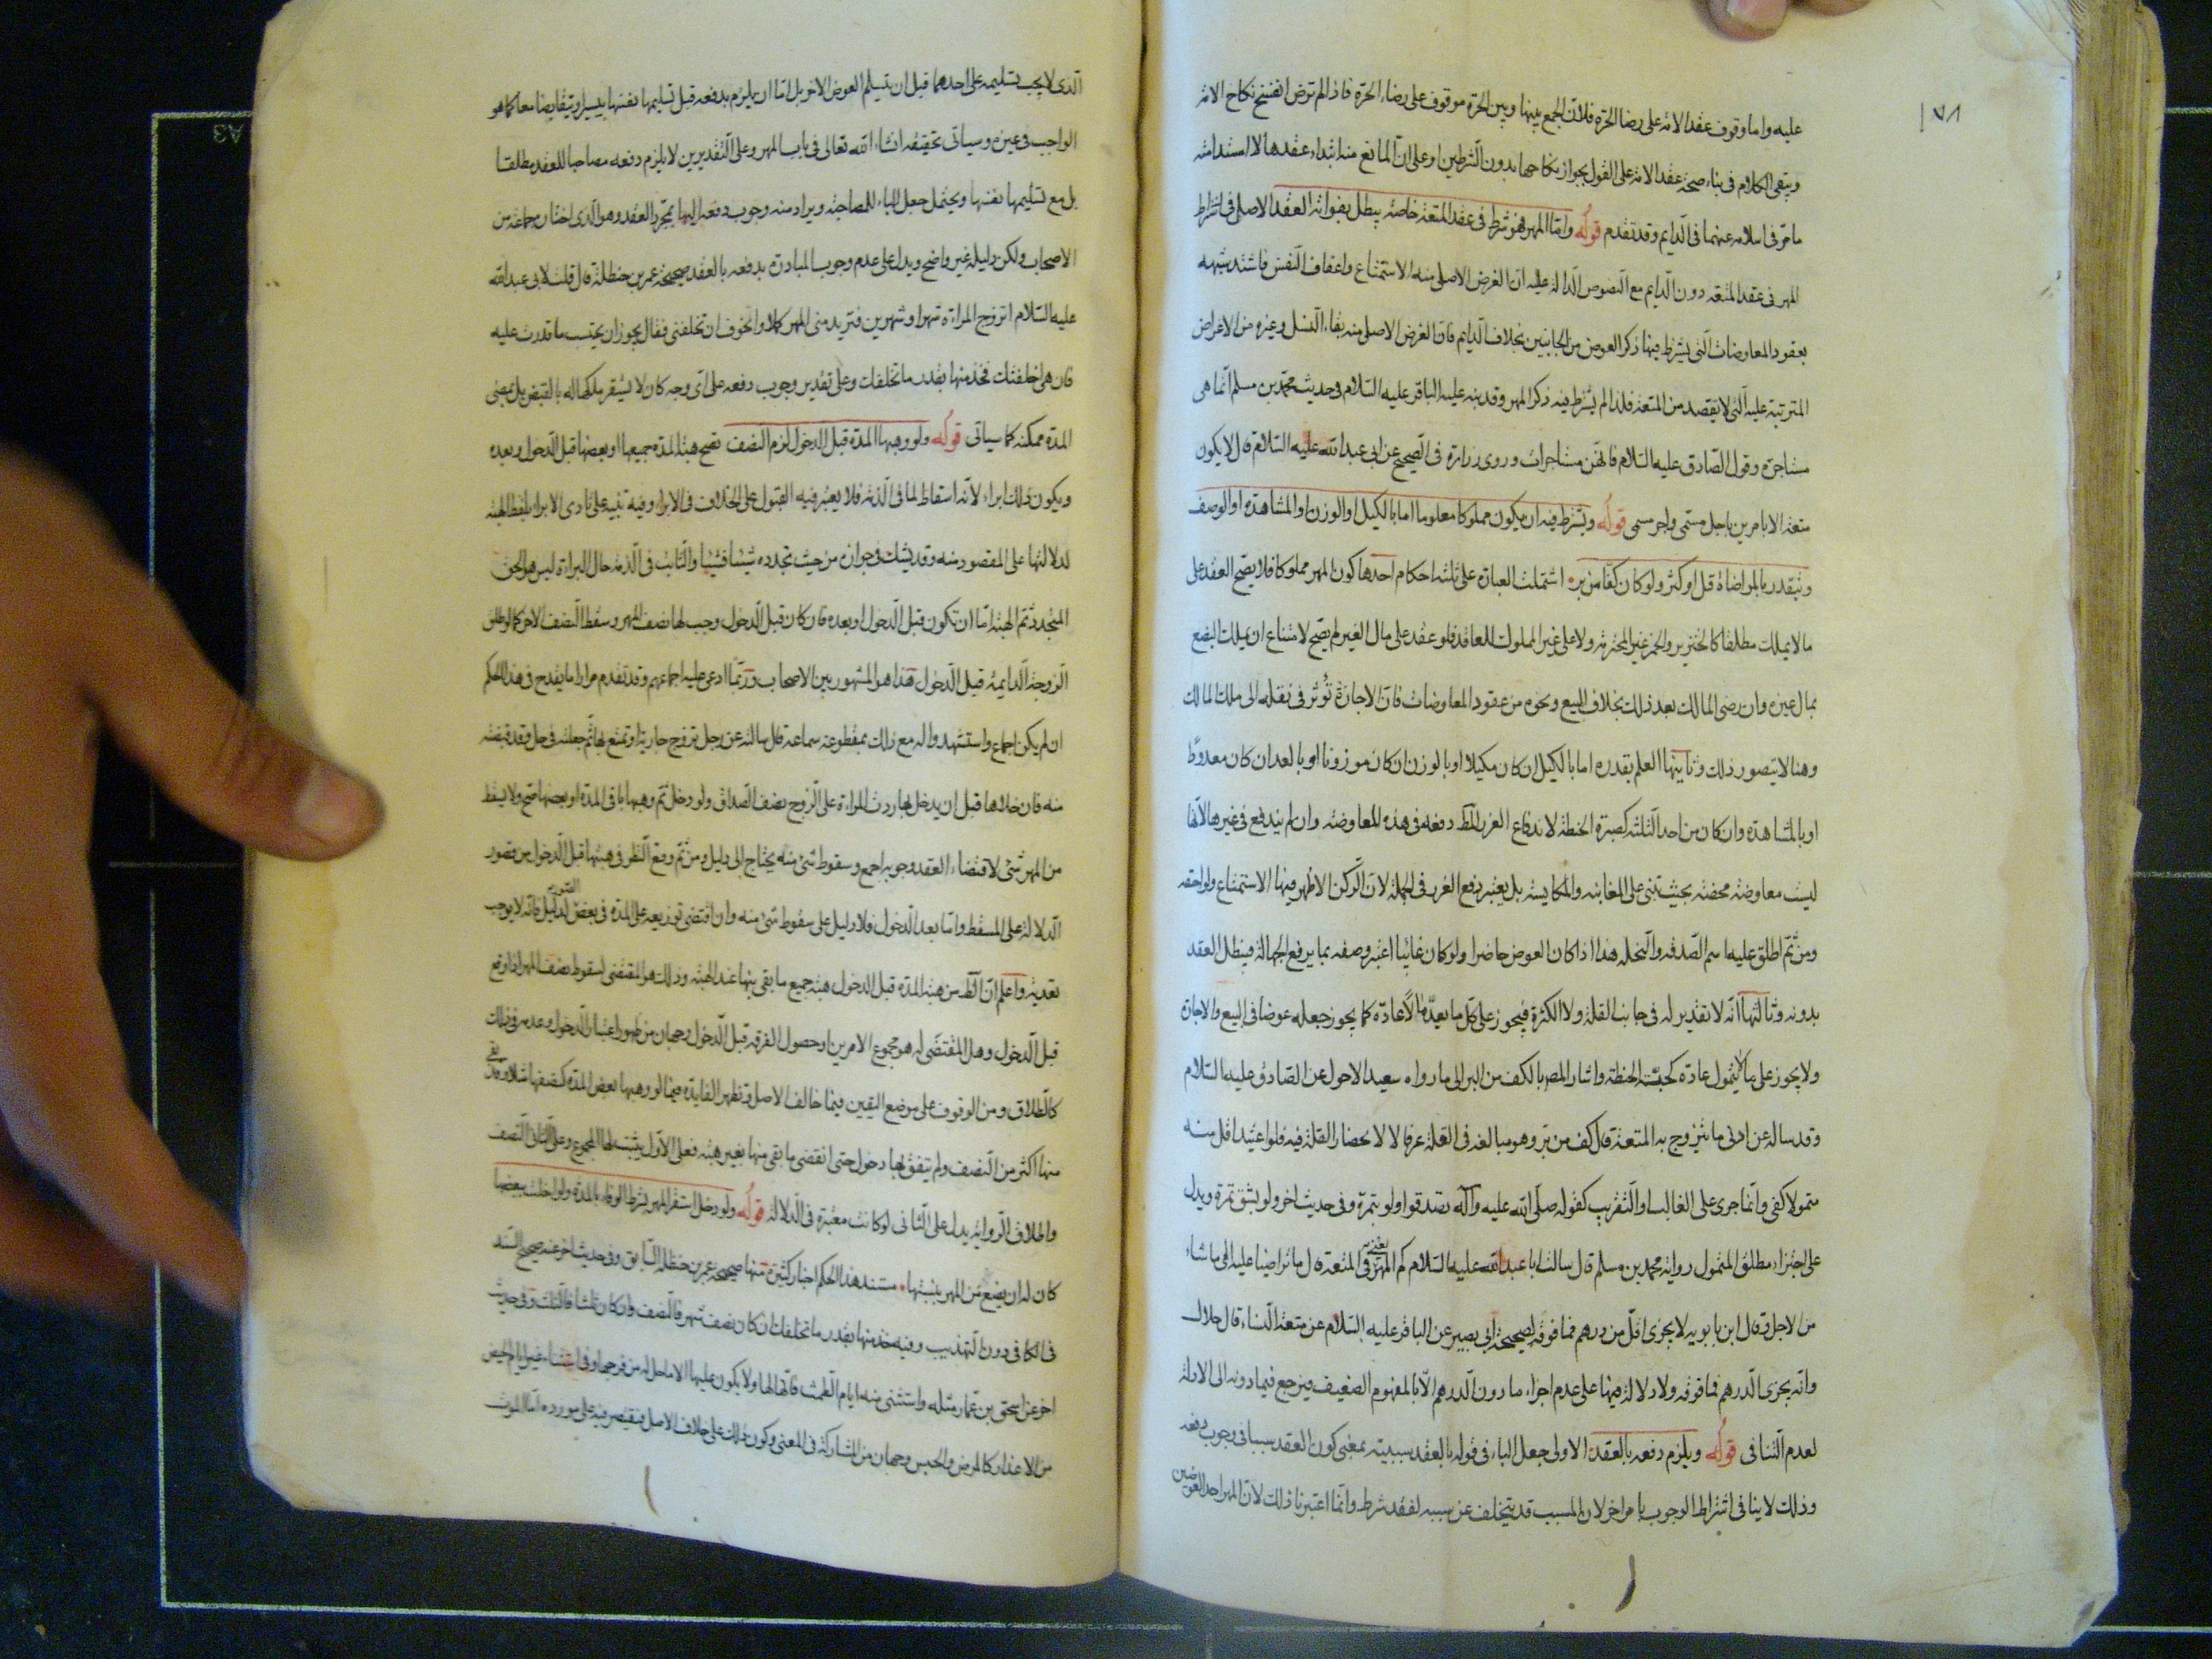 ١٧٨
عليه واما وقوف عقد الامة على رضا الحرة فلان الجمع بينها وبين الحرة موقوف على رضاء الحرة فاذا لم ترض انفسخ نكاح الامة
ويبقى الكلام فى بناء صحة عقد الامة على القول بجواز نكاحها بدون الشرطين او على ان المانع منه ابتداء عقدها لا استدامته
ما مر فى اسلامه عنهما فى الدايم وقد تقدم قوله واما المهر فهو شرط فى عقد المتعة خاصة يبطل بفواته العقد الاصل فى اشتراط
المهر فى عقد المتعة دون الدايم مع النصوص الدالة عليه ان الغرض الاصلى منه الاستمتاع واعفاف النفس فاشتد شبهه
بعقود المعاوضات التى يشترط فيها ذكر العوض من الجانبين بخلاف الدايم فان الغرض الاصلى منه بقاء النسل وغيره من الاغراض
المترتبة عليه التى لا تقصد من المتعة فلذا لم يشترط فيه ذكر المهر وقد نبه عليه الباقر عليه السلام فى حديث محمد بن مسلم انما هى
مستاجرة وقول الصادق عليه السلام فانهن مستاجرات وروى زرارة فى الصحيح عن ابى عبد الله عليه السلام قال لا يكون
متعة الا بامرين باجل مسمى واجر مسمى قوله ويشترط فيه ان يكون مملوكا معلوما اما بالكيل او الوزن او المشاهدة او الوصف
ويتقدر بالمراضاة قل او كثر ولو كان كفا من بر اشتملت العبارة على ثلثة احكام احدها كون المهر مملوكا فلا يصح العقد على
ما لا يملك مطلقا كالخنزير والخمر غير المحترمة ولا على غير المملوك للعاقد فلو عقد على مال الغير لم يصح لامتناع ان يملك البضع
بمال غيره وان رضى المالك بعد ذلك بخلاف البيع ونحوه من عقود المعاوضات فان الاجازة تؤثر فى نقله الى ملك المالك
وهنا لا يتصور ذلك وثانيتها العلم بقدره اما بالكيل ان كان مكيلا او بالوزن ان كان موزونا او بالعد ان كان معدودا
او بالمشاهدة وان كان من احد الثلثة كصبرة الحنطة لاندفاع الغرر المط دفعه فى هذه المعاوضة وان لم يندفع فى غيرها لانها
ليست معاوضة محضة بحيث تبنى على المغابنة والمكايسة بل يعتبر دفع الغرر فى الجملة لان الركن الاظهر فيها الاستمتاع ولواحقه
ومن ثم اطلق عليه اسم الصدقة والنحلة هذا اذا كان العوض حاضرا ولو كان غائبا اعتبر وصفه بما يرفع الجهالة فيبطل العقد
بدونه وثالثتها انه لا تقدير له فى جانب القلة ولا الكثرة فيجوز على كل ما يعد مالا عادة كما يجوز جعله عوضا فى البيع والاجارة
ولا يجوز على ما لا يتمول عادة كحبة الحنطة واشار المصر بالكف من البر الى ما رواه سعيد الاحول عن الصادق عليه السلام
وقد ساله عن ادنى ما يتزوج به المتعة قال كف من بر وهو مبالغة فى القلة عرفا لا لانحصار القلة فيه فلو اعتبد اقل منه
متمولا كفى وانما جرى على الغالب او التقريب كقوله صلى الله عليه وآله تصدقوا ولو بتمرة وفى حديث اخر ولو بشق تمرة ويدل
على اجتزاء مطلق المتمول رواية محمد بن مسلم قال سالت ابا عبد الله عليه السلام كم المهر يعنى فى المتعة قال ما تراضيا عليه الى ما شاء
من الاجل وقال ابن بابويه لا يجزى اقل من درهم فما فوقه لصحيحة ابى بصير عن الباقر عليه السلام عن متعة النساء قال حلال
وانه يجزى الدرهم فما فوقه ولا دلالة فيها على عدم اجزاء ما دون الدرهم الا بالمفهوم الضعيف فيرجع فيما دونه الى الادلة
لعدم التنافى قوله ويلزم دفعه بالعقد الاولى جعل الباء فى قوله بالعقد سببية بمعنى كون العقد سببا فى وجوب دفعه
وذلك لا ينافى اشتراط الوجوب بامر اخر لان المسبب قد يتخلف عن سببه لفقد شرط وانما اعتبرنا ذلك لان المهر احد العوضين
الذى لا يجب تسليمه على احدهما قبل ان يتسلم العوض الاخر بل اما ان يلزم بدفعه قبل تسليمها نفسها بيسير او يتقابضا معا كما هو
الواجب فى غيره وسياتى تحقيقه انشاء الله تعالى فى باب المهر وعلى التقديرين لا يلزم دفعه مصاحبا للعقد مطلقا
بل مع تسليمها نفسها ويحتمل جعل الباء للمصاحبة ويراد منه وجوب دفعه اليها بمجرد العقد وهو الذى اختاره جماعة من
الاصحاب ولكن دليله غير واضح ويدل على عدم وجوب المبادرة بدفعه بالعقد صحيحة عمر بن حنظلة قال قلت لابى عبد الله
عليه السلام اتزوج المراة شهرا وشهرين فتريد منى المهر كملا واتخوف ان تخلفنى فقال يجوز ان يحتبس ما قدرت عليه
فان هى اخلفتك فخذ منها بقدر ما تخلفك وعلى تقدير وجوب دفعه على اى وجه كان لا يستقر ملكها له بالقبض بل بمضى
المدة ممكنة كما سياتى قوله ولو وهبها المدة قبل الدخول لزم النصف تصح هبة المدة جميعها او بعضها قبل الدخول وبعده
ويكون ذلك ابراء لانه اسقاط لما فى الذمة فلا يعتبر فيه القبول على الخلاف فى الابراء وفيه تنبيه على تادى الابراء بلفظ الهبة
لدلالتها على المقصود منه وقد يشك فى جوازه من حيث تجدده شيئا فشيئا والثابت فى الذمة حال البراءة ليس هو الحق
المتجدد ثم الهبة اما ان تكون قبل الدخول او بعده فان كان قبل الدخول وجب لها نصف المهر وسقط النصف الاخر كما لو طلق
الزوجة الدايمة قبل الدخول هذا هو المشهور بين الاصحاب وربما ادعى عليه اجماعهم وقد تقدم مرارا ما يقدح فى هذا الحكم
ان لم يكن اجماع واستشهدوا له مع ذلك بمقطوعة سماعة قال سالته عن رجل تزوج جارية او تمتع بها ثم جعلته فى حل وقد قبضته
منه فان خلاها قبل ان يدخل بها ردت المراة على الزوج نصف الصداق ولو دخل ثم وهبها باقى المدة او بعضها صح ولا يسقط
من المهر شئ لاقتضاء العقد وجوبه اجمع وسقوط شئ منه يحتاج الى دليل ومن ثم وقع النظر فى هبتها قبل الدخول من قصور
الدلالة على المسقط واما بعد الدخول فلا دليل على سقوط شئ منه وان اقتضى توزيعه على المدة فى بعض الصور لدليل فانه لا يوجب
تعديته واعلم ان الظ من هبة المدة قبل الدخول هبة جميع ما بقى منها عند الهبة وذلك هو المقتضى لسقوط نصف المهر اذا وقع
قبل الدخول وهل المقتضى له هو مجموع الامرين او حصول الفرقة قبل الدخول وجهان من ظهور اعتبار الدخول وعدمه فى ذلك
كالطلاق ومن الوقوف على موضع اليقين فيما خالف الاصل وتظهر الفايدة فيما لو وهبها بعض المدة كنصفها مثلا وقد بقى
منها اكثر من النصف ولم يتفق لها دخول حتى انقضى ما بقى منها بغير هبة فعلى الاول يثبت لها المجموع وعلى الثانى النصف
واطلاق الرواية يدل على الثانى لو كانت معتبرة فى الدلالة قوله ولو دخل استقر المهر بشرط الوفاء بالمدة ولو اخلت ببعضها
كان له ان يضع من المهر بنسبتها مستند هذا الحكم اخبار كثيرة منها صحيحة عمر بن حنظلة السابق وفى حديث اخر عنه صحيح السند
فى الكافى دون التهذيب وفيه خذ منها بقدر ما تخلفك ان كان نصف شهر فالنصف وان كان ثلثا فالثلث وفى حديث
اخر عن اسحق بن عمار مثله واستثنى منه ايام الطمث فانها لها ولا يكون عليها الا ما حل له من فرجها وفى استثناء غير ايام الحيض
من الاعذار كالمرض والحبس وجهان من المشاركة فى المعنى وكون ذلك على خلاف الاصل فيقتصر فيه على مورده اما الموت